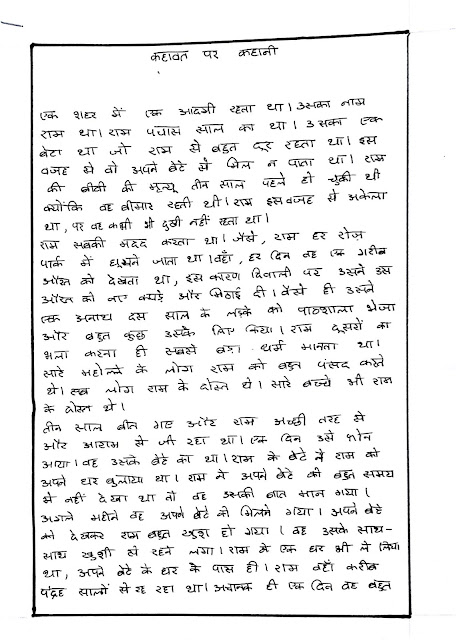 कहावत पर कहानी
एक शहर में एक आदमी रहता था। उसका नाम
राम था। राम पचास साल का था। उसका एक
बेटा था जो राम से बहुत दूर रहता था। इस
वजह से वो अपने बेटे से मिल न पाता था। राम
की बीवी की मृत्यू तीन साल पहले हो चुकी थी
क्योंकि वह बीमार रहती थी। राम इस वजह से अकेला
था, पर वह कभी भी दुखी नहीं रहता था।
राम सबकी मदद करता था। जैसे, राम हर रोज़
पार्क में घूमने जाता था। वहाँ, हर दिन वह एक गरीब
औरत को देखता था, इस कारण दिवाली पर उसने उस
औरत को नए कपड़े और मिठाई दी। वैसे ही उसने
एक अनाथ दस साल के लड़के को पाठशाला भेजा
और बहुत कुछ उसके लिए किया। राम दूसरों का
भला करना ही सबसे बड़ा धर्म मानता था।
सारे महोल्ले के लोग राम को बहुत पंसद करते
थे। सब लोग राम के दोस्त थे। सारे बच्चे भी राम
के दोस्त थे।
तीन साल बीत गए और राम अच्छी तरह से
और आराम से जी रहा था। एक दिन उसे फोन
आया। वह उसके बेटे का था। राम के बेटे ने राम को
अपने घर बुलाया था। राम ने अपने बेटे को बहुत समय
से नहीं देखा था तो वह उसकी बात मान गया।
अगले महीने वह अपने बेटे को मिलने गया। अपने बेटे
को देखकर राम बहुत खुश हो गया। वह उसके साथ-
साथ खुशी से रहने लगा। राम ने एक घर भी ले लिया
था, अपने बेटे के घर के पास ही। राम वहाँ करीब
पंद्रह सालों से रह रहा था। अचानक ही एक दिन वह बहुत